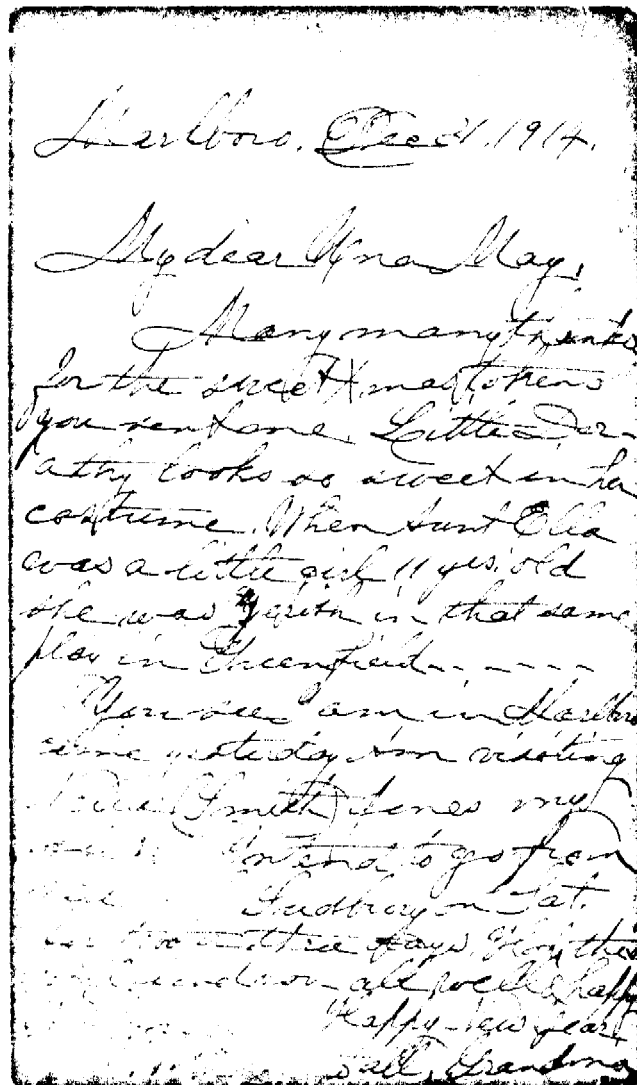 Marlboro. Dec 31. 1914.
My dear Una May,
Many many thanks
for the sweet Xmas tokens
you sent me. Little Dor-
athy looks so sweet in her
costume. When Aunt Ella
was a little girl 11 yrs. old
she was in that same
play in Greenfield - - - - -
You see am in Marlboro
came yesterday. Am visiting
(Smith) Jones my
Intend to go from
Sudbury on Sat.
for two or three days. Hope this
will find you all well & happy
Happy New Year,
all, Grandma